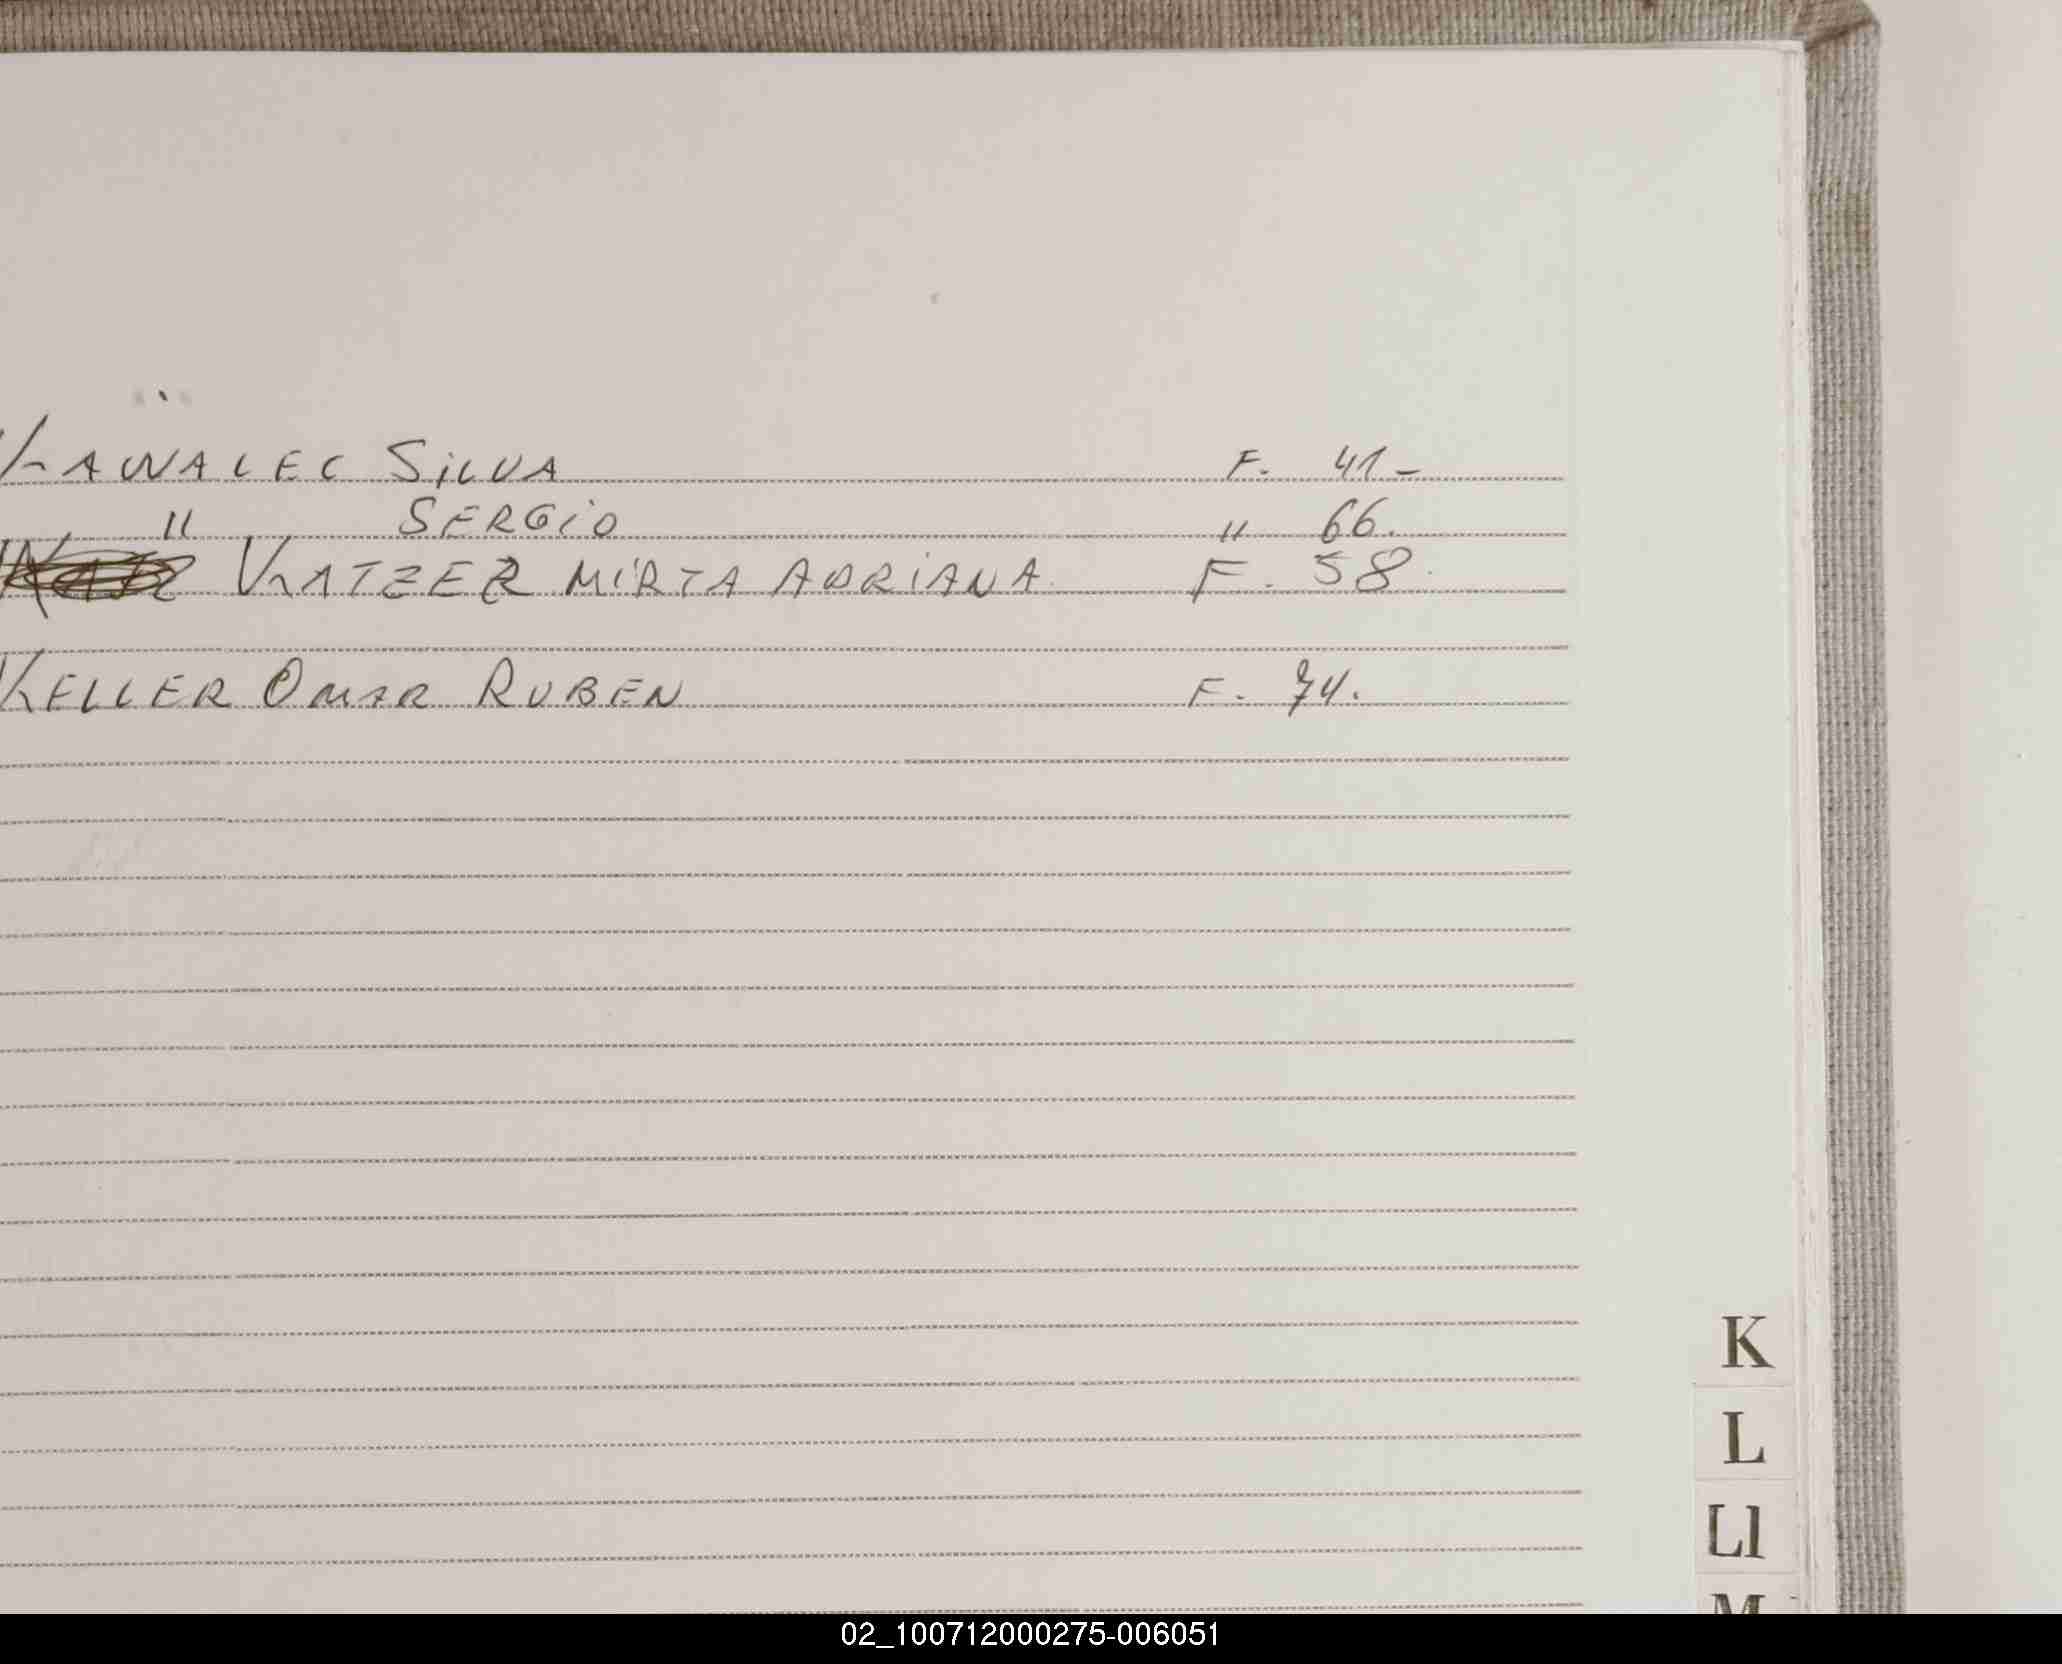 KAWALEC SILVA F. 41-
" SERGIO " 66.
KATZER MIRTA ADRIANA F. 58.
KELLER OMAR RUBEN F. 74.
K
L
Ll
M
02_100712000275-006051